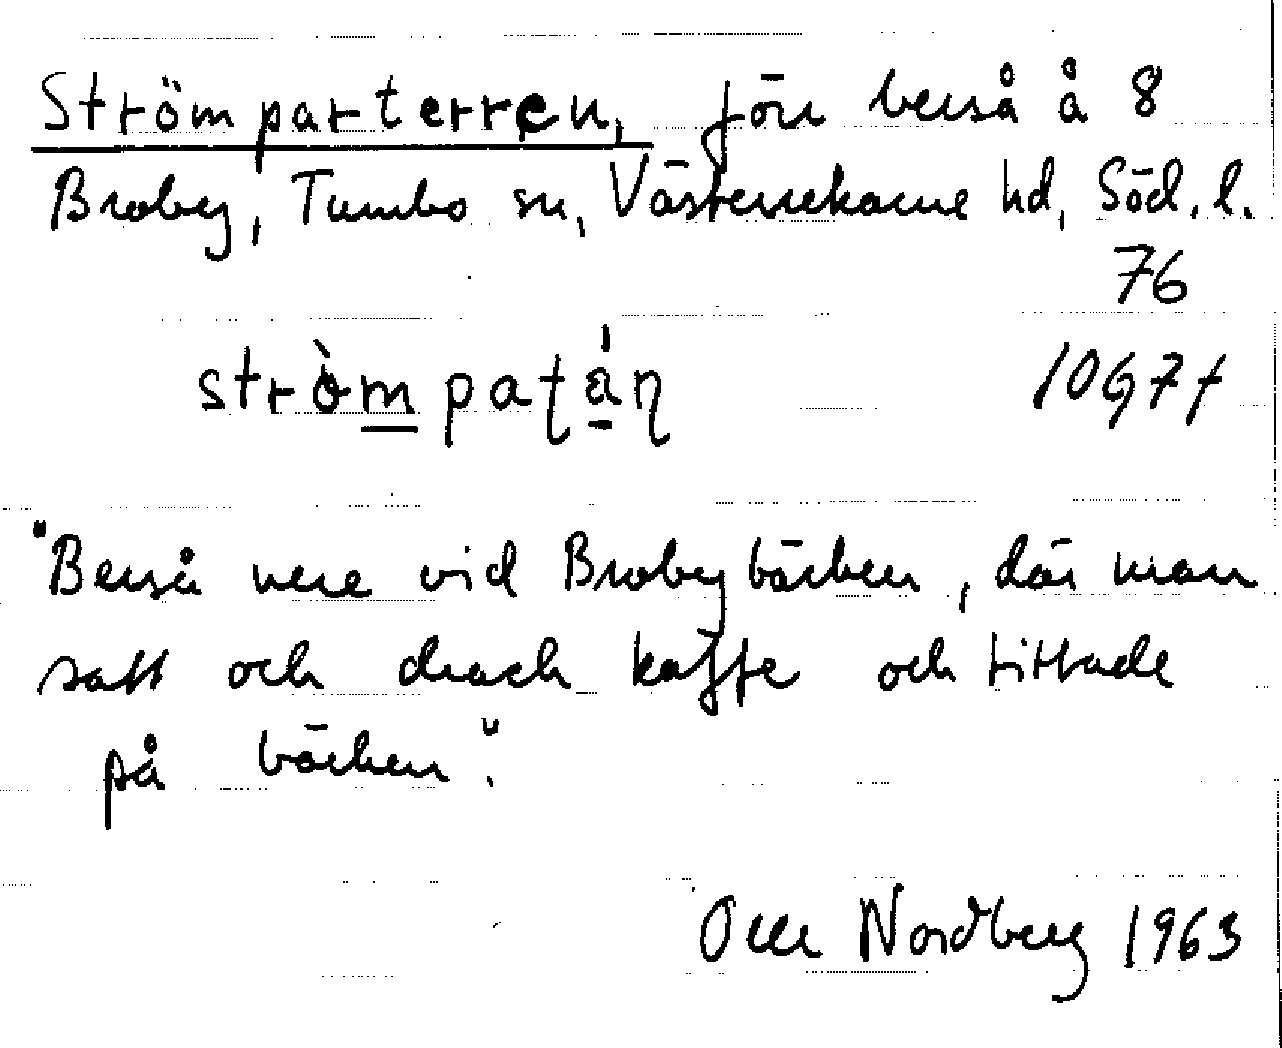 Strömparterren, förr berså å 8
Broby, Tumbo sn, Västerrekarne hd, Söd. l.
76
10G7f
strö̀mpaʈánɳ
"Berså nere vid Brobybäcken, där man
satt och drack kaffe och tittade
på bäcken".
Olle Nordberg 1963